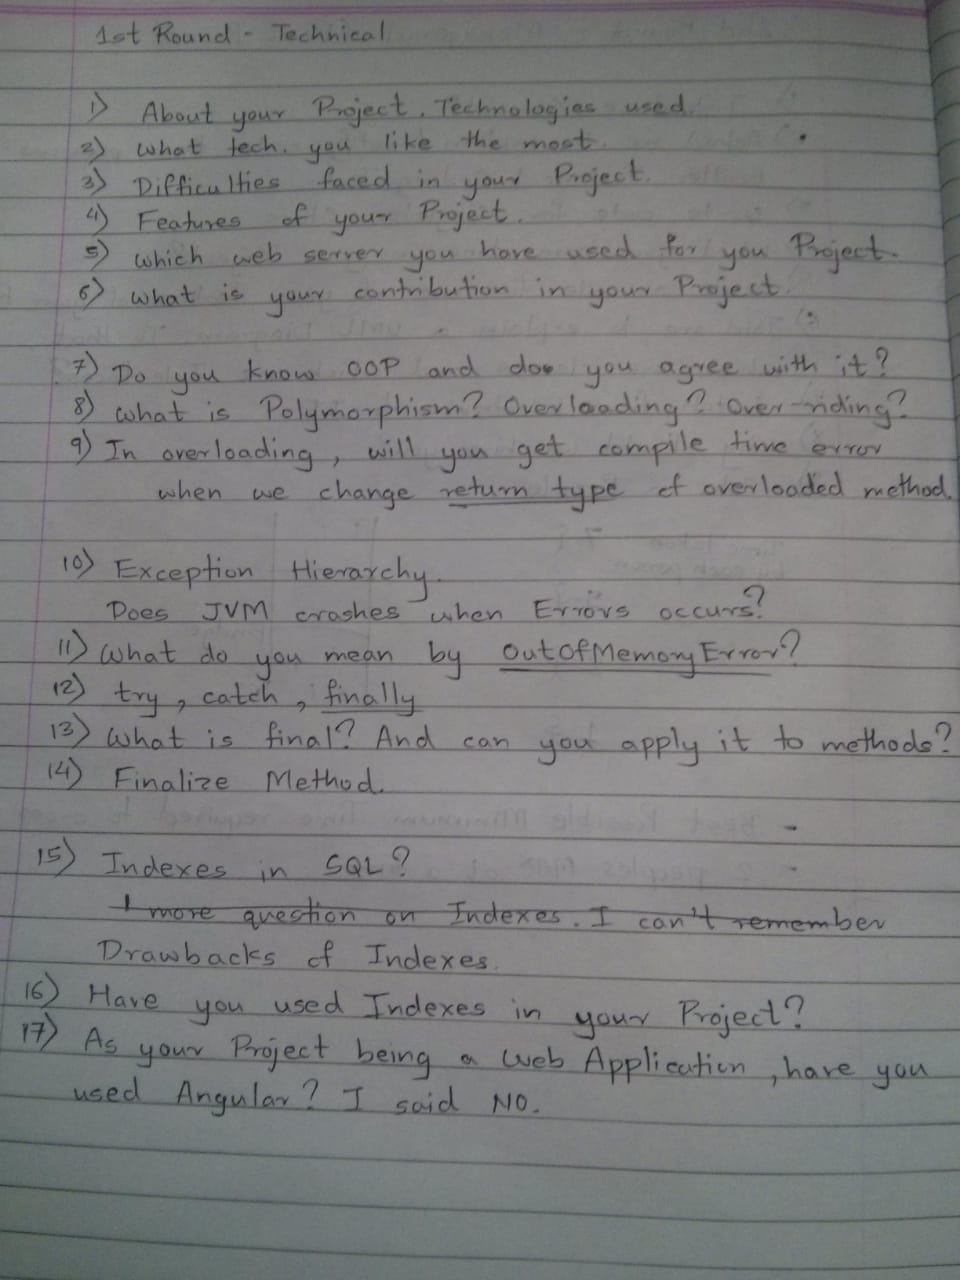 1st Round - Technical
1) About your Project. Technologies used.
2) What tech. you like the most.
3) Difficulties faced in your Project.
4) Features of your Project.
5) Which web server you have used for you Project.
6) What is your contribution in your Project.
7) Do you know OOP and do you agree with it?
8) What is Polymorphism? Overloading? Over-riding?
9) In overloading, will you get compile time error
when we change return type of overloaded method.
10) Exception Hierarchy.
Does JVM crashes when Errors occurs?
11) What do you mean by OutOfMemoryError?
12) try, catch, finally
13) What is final? And can you apply it to methods?
14) Finalize Method.
15) Indexes in SQL?
1 more question on Indexes. I can't remember
Drawbacks of Indexes.
16) Have you used Indexes in your Project?
17) As your Project being a Web Application, have you
used Angular? I said NO.